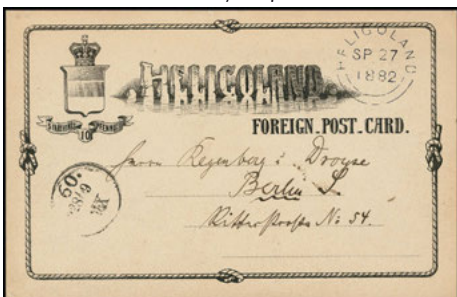 HELIGOLAND
SP 27
1882
HELIGOLAND.
10
FOREIGN.POST.CARD.
Herrn Regenberg &
Berlin S.
Ritterstrasse No: 54.
50.
28/9